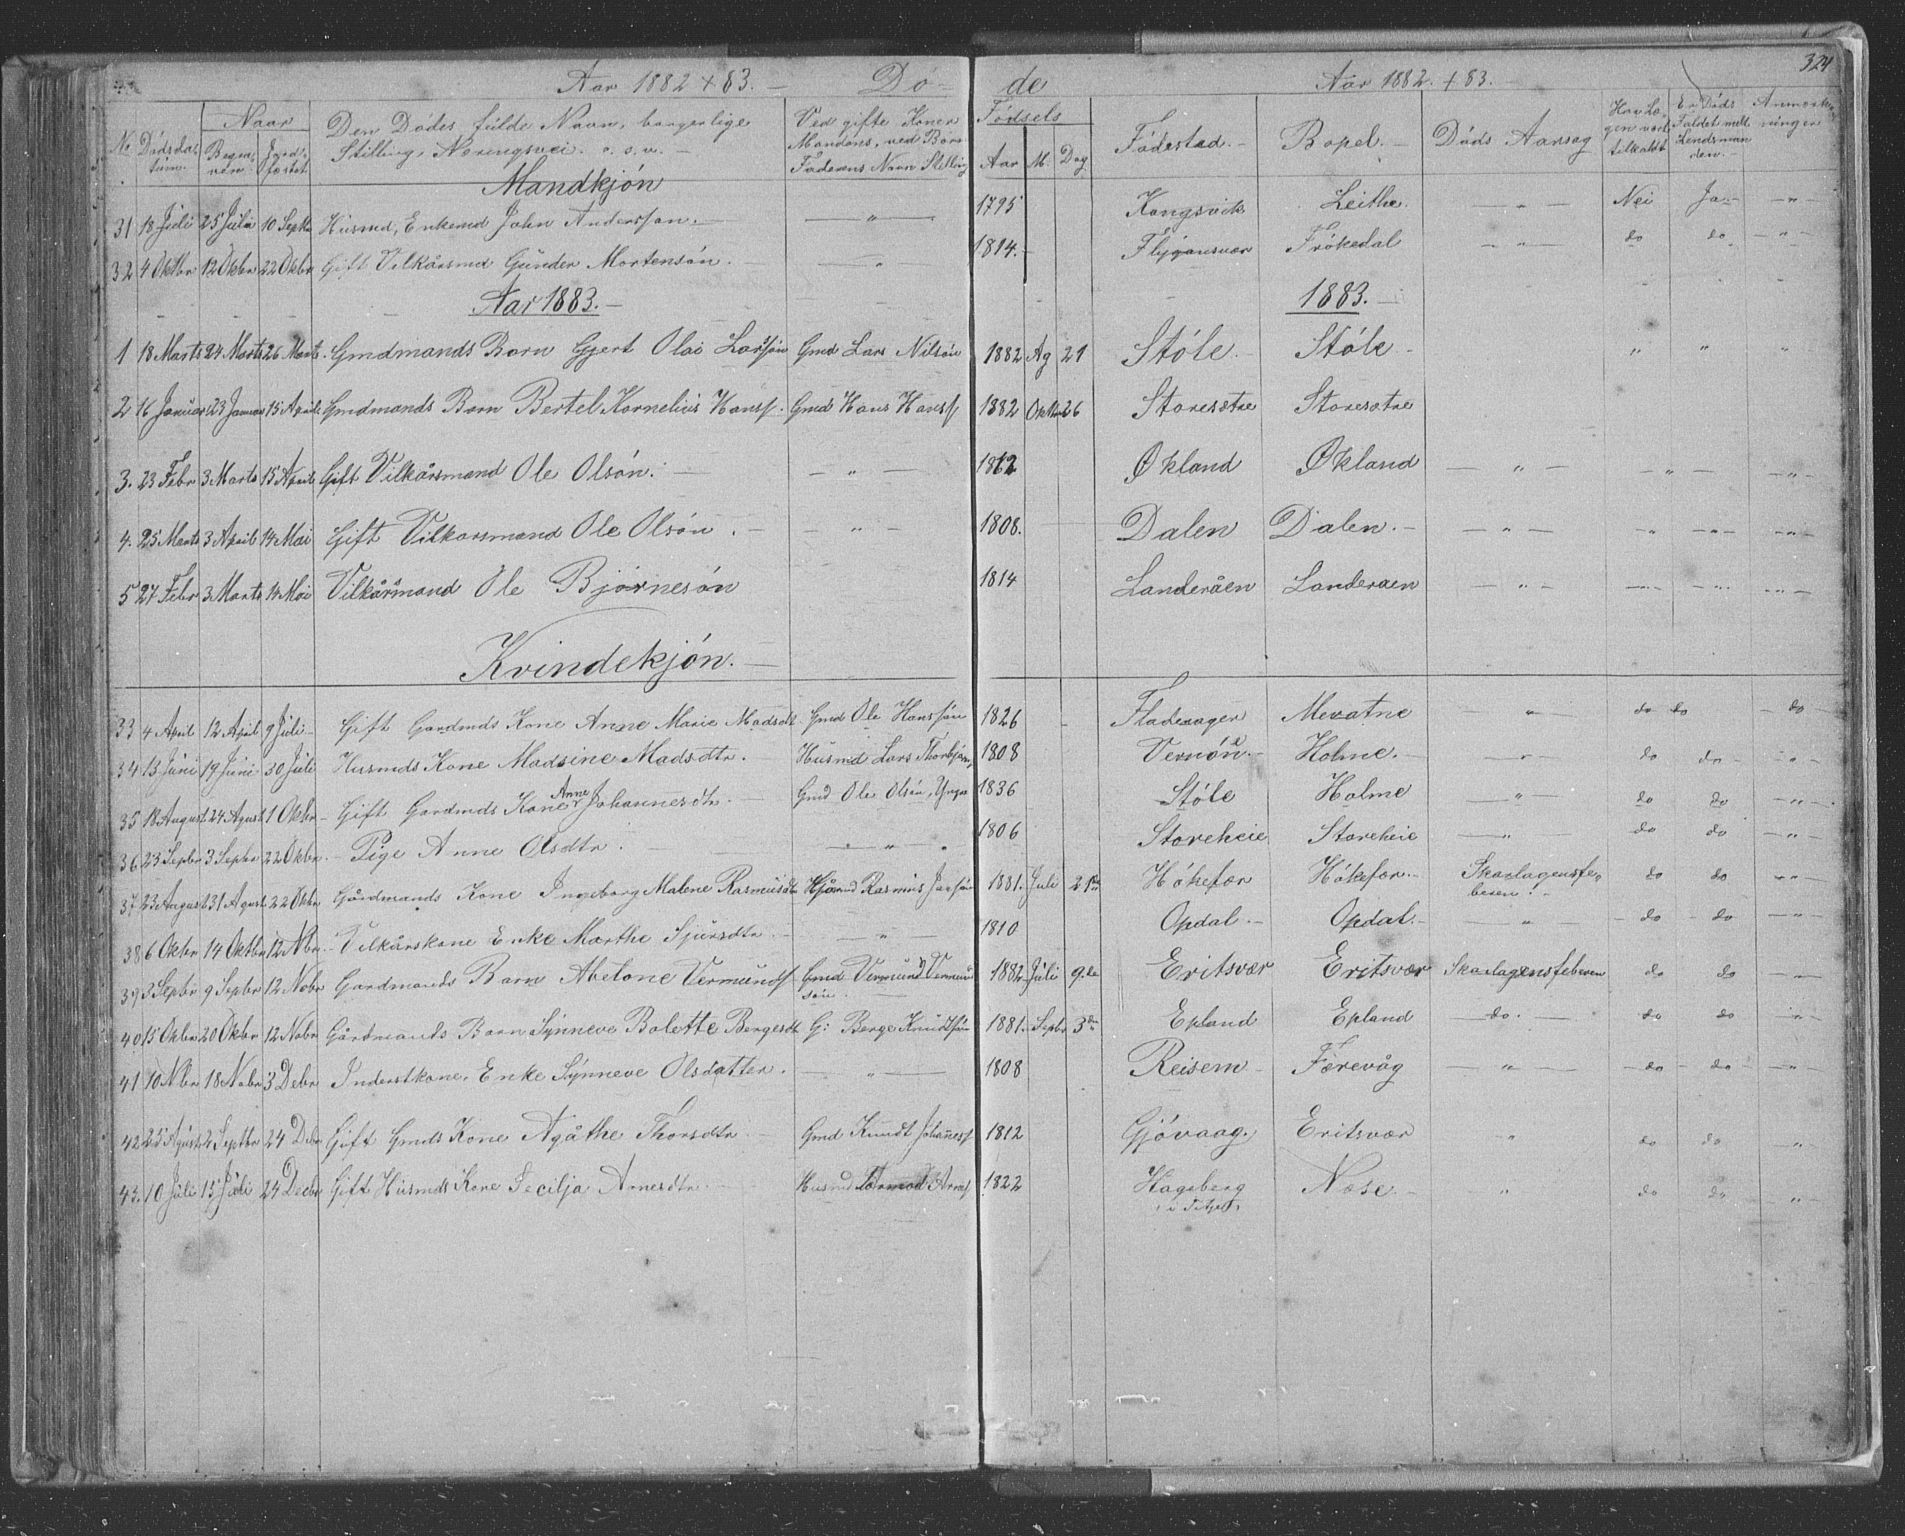 Aar 1882 + 83. Dö- de Aar 1882. + 83. 324
No Dödsdatum Naar Begraven Jordfæstet Den Dödes fulde Navn, borgerlige Stilling, Næringsvei. o. s. v. Ved gifte Koner Mandens, ved Börn Faderens Navn Stilling Födsels Aar M. Dag Födested. Bopel. Döds Aarsag Har Lægen vært tilkaldt Er Döds Faldet melt Lendsmanden. Anmærkninger
Mandkjön
31 18 Juli 25 Juli 10 Septbr Husmd, Enkemd John Anderssøn. — „ — 1795 Kongsvik Leithe. — „ — Nei Ja. — „ —
32 4 Oktbr 12 Okbr 22 Okbr Gift Vilkårsmd Gunder Mortensön. — „ 1814. Flygansvær Frökedal — „ — do do — „ —
Aar 1883. — 1883. —
1 18 Marts 24 Marts 26 Marts. Gmdmands Barn Gjert Olai Larssön Gmd Lars Nilsön 1882 Ag 21 Støle. Støle „ „ „
2 16 Januar 23 Januar 15 April Gmdmands Barn Bertel Kornelius Hansf. Gmd Hans Hansf 1882 Oktbr 26 Storesætre Storesætre
3. 23 Febr 3 Marts 15 April Gift Vilkårsmand Ole Olsön. — — „ — 1812 Økland Økland — „ — — „ — — „ —
4. 25 Marts 3 April 14 Mai Gift Vilkorsmand Ole Olsön. — — „ — 1808. Dalen Dalen. — — „ — „ — „ — — „ —
5 27 Febr 3 Marts 14 Mai Vilkårmand Ole Bjørnesön 1814 Landeråen Landeraen — „ — — „ — — „ — — „ —
Kvindekjön. —
33 4 April 12 April 9 Juli Gift Gardmds Kone Anne Marie Madsdt Gmd Ole Hanssön 1826 Fladerager Mevatne „ do do do
34 13 Juni 19 Juni 30 Juli Husmds Kone Madsine Madsdtr. Husmd Lars Thorbjørn 1808 Vernøn. Holme. „ do do „
35 18 August 24 Agust 1 Okbr Gift Gardmds Kone Anne Johannesdtr. Gmd Ole Olsön, Ynga 1836 Støle Holme — „ — do do „
36 23 Sepbr 3 Sepbr 22 Okbr. Pige Anne Olsdtr. „ „ „ 1806 Storeheie Storeheie — „ — do do „
37 23 August 31 Agust 22 Okbr Gårdmands Kone Ingeborg Malene Rasmusdt Rasmus 1881. Juli 21 Høkefær Høkefær. Skarlagensfebeien. do do „
38 6 Okbr 14 Oktbr 12 Nbr. Vilkårskone Enke Marthe Sjursdtr. — „ — 1810 Opdal. Opdal. „ do do „
39 3 Sepbr 9 Sepbr 12 Nobr Gardmands Barn Abelone Vermundf Gmd Vermund Vermundsøn. 1882 Juli 9de Eritsvær Eritsvær Skarlagensfeberen do do „
40 15 Okbr 20 Okbr 12 Nobr Gårdmands Barn Synneve Bolette Bergesdt G: Berge Knudtsøn 1881. Sepbr 3de Epland Epland — do. — do do „
41 10 Nbr 18 Nobr 3 Debr Inderstkone, Enke Synneve Olsdatter. — „ — 1808 Reisem Færevåg „ do do „
42 25 Agust 2 Septbr 24 Debr Gift Gmds Kone Agåthe Thorsdtr Gmd Knudt Johannesf 1812 Gjövaag. Eritsvær „ do do „
43. 10 Juli 15 Juli 24 Decbr Gift Husmds Kone Secilja Arnesdtr. Husmd Tormod Arnef 1822 Hagsberg Nose. „ do do „